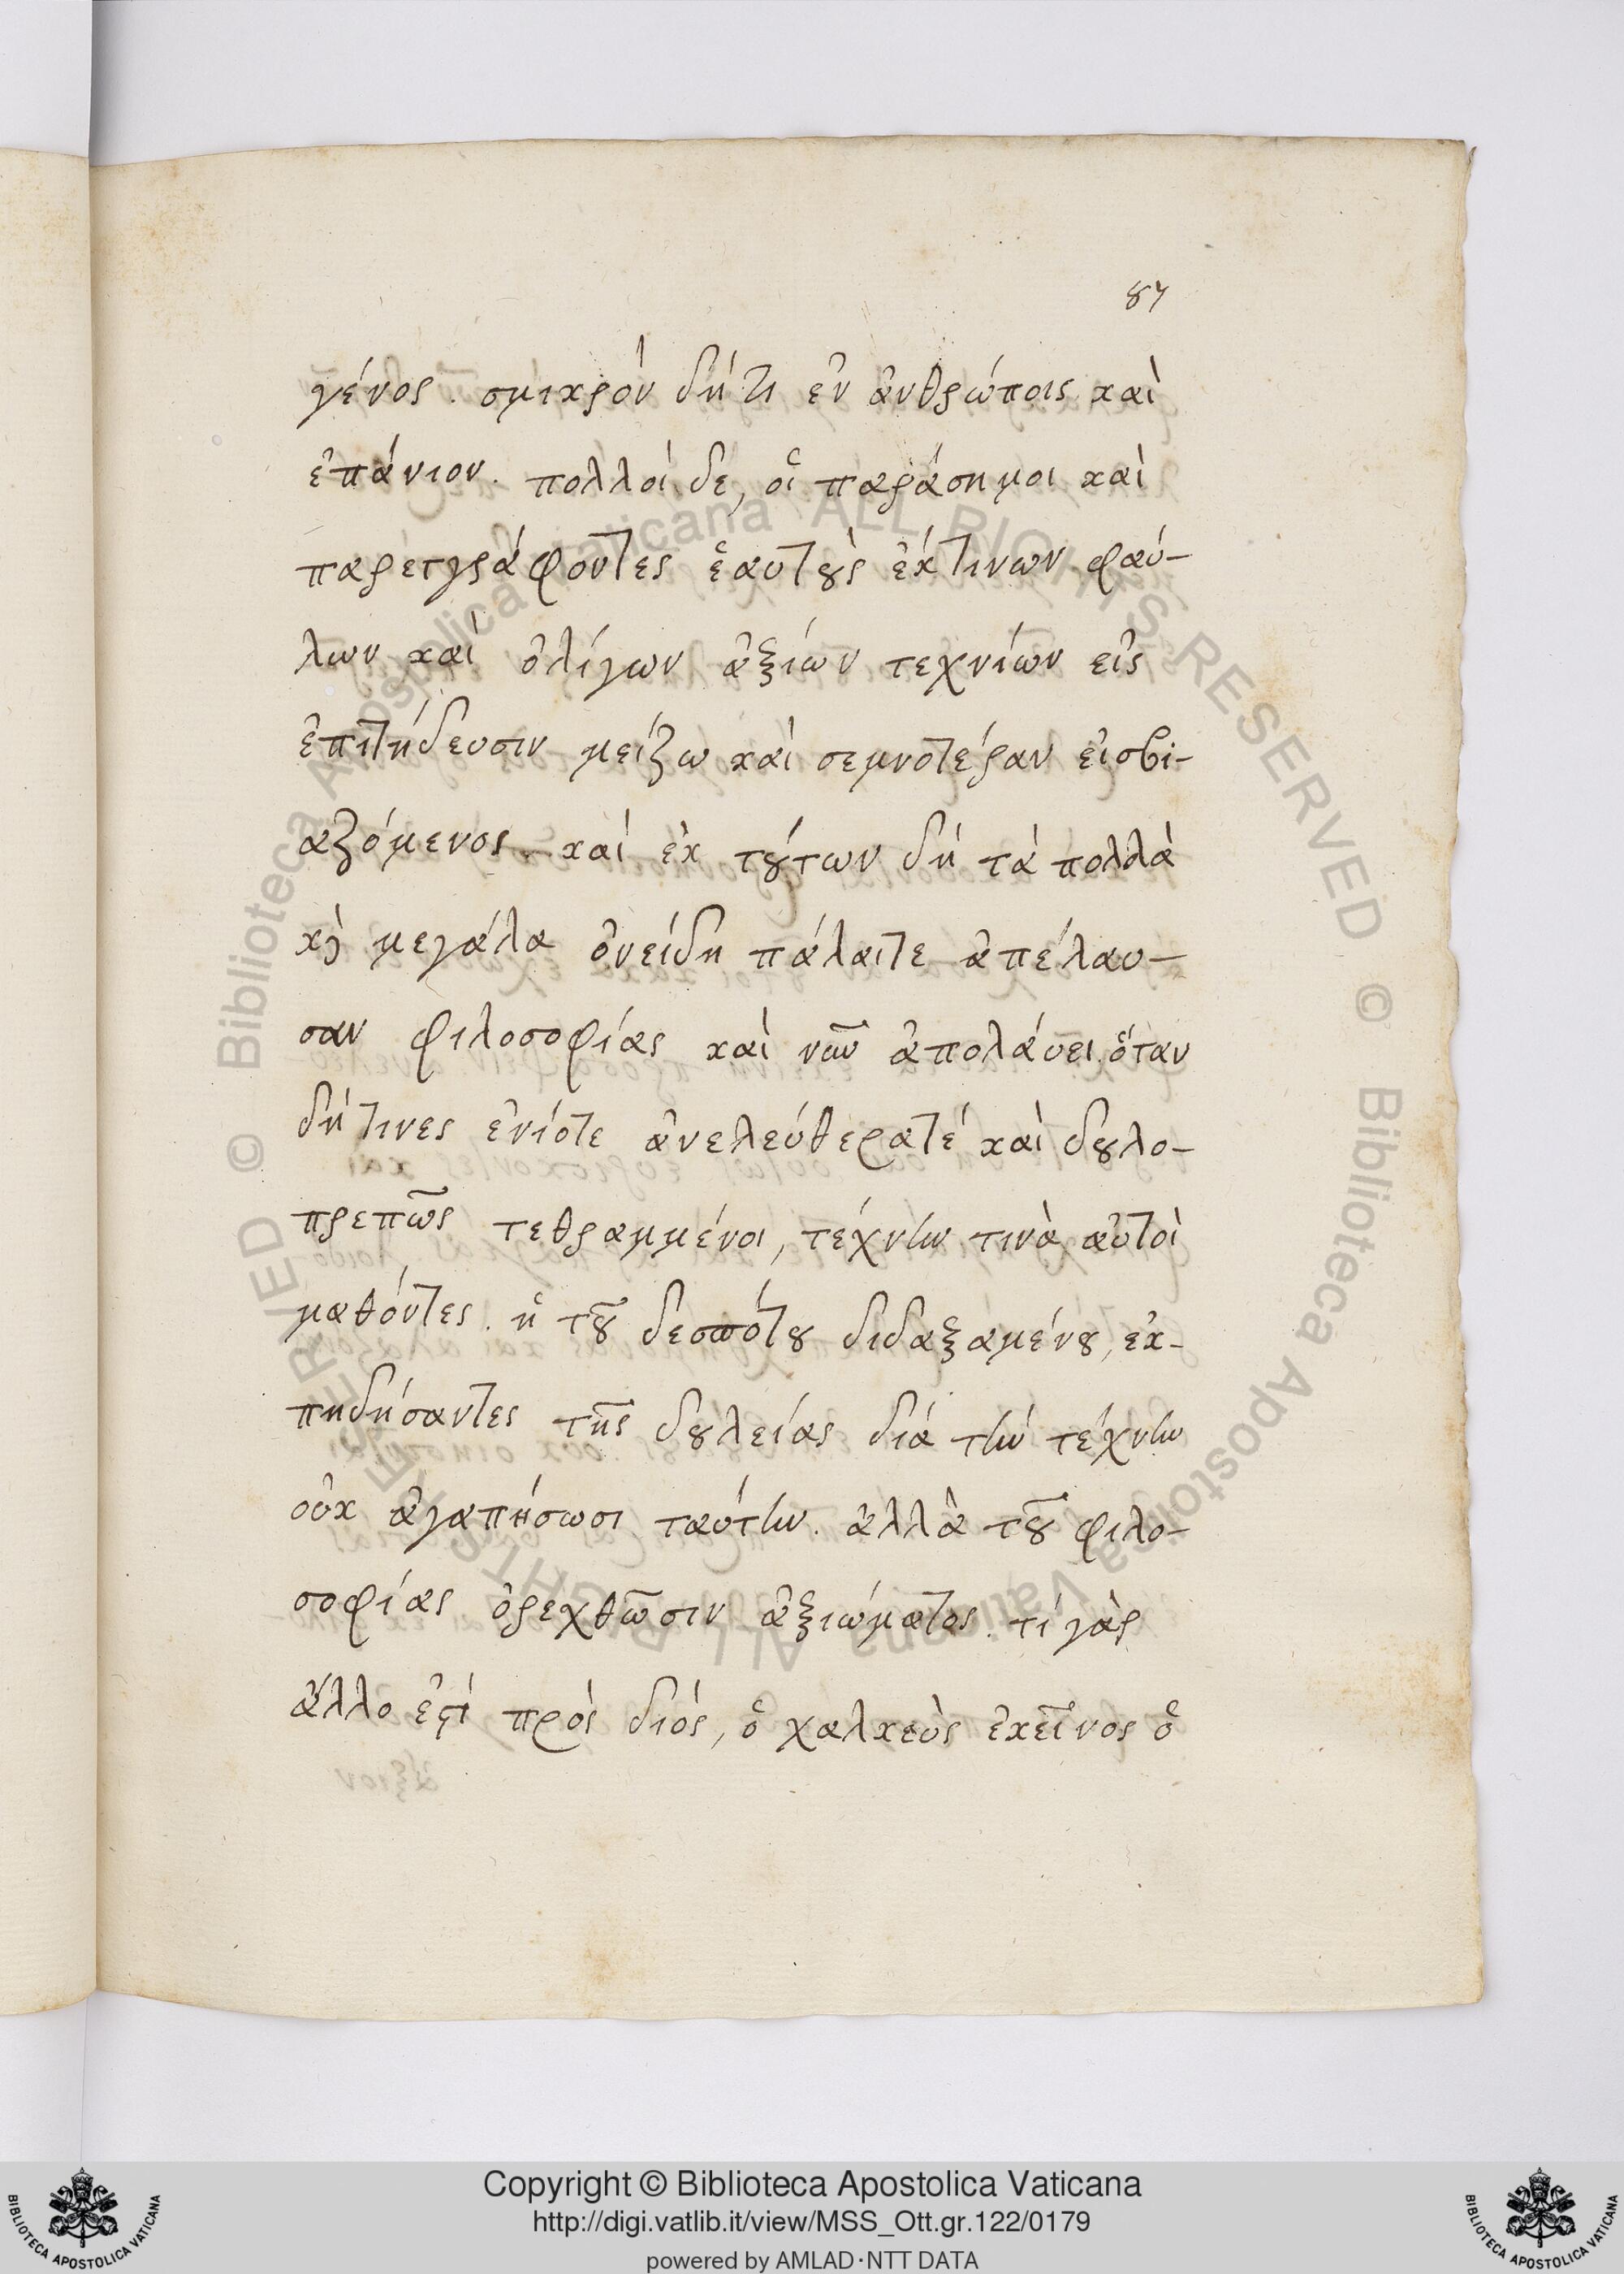 87
γένος. σμικρὸν δή τι ἐν ἀνθρώποις καὶ
ἐπάνιον. πολλοί δε, οἱ παράσημοι καὶ
παρεγγράφοντες ἑαυτοὺς ἐκ τινων φαύ-
λων καὶ ὀλίγων ἀξιών τεχνίων εἰς
ἐπιτήδευσιν μείζω καὶ σεμνοτέραν εἰσβι-
αζόμενος. καὶ ἐκ τούτων δή τὰ πολλὰ
καὶ μεγάλα ὀνείδη πάλαι τε ἀπέλαυ-
σαν φιλοσοφίας καὶ νῦν ἀπολάυει. ὅταν
δή τινες ἐνίοτε ἀνελεύθερα τέ καὶ δουλο-
πρεπῶς τεθραμμένοι, τέχνην τινὰ αὐτοὶ
μαθόντες. ἢ τοῦ δεσπότου διδαξαμένου, ἐκ-
πηδήσαντες τῆς δουλείας διά τήν τέχνην
οὐκ ἀγαπήσωσι ταύτην. ἀλλὰ τοῦ φιλο-
σοφίας ὀρεχθῶσιν ἀξιώματος. τί γὰρ
ἄλλο ἐστὶ πρὸς διός, ὁ χαλκεὺς ἐκεῖνος ὁ
© Biblioteca Apostolica Vaticana ALL RIGHTS RESERVED © Biblioteca Apostolica Vaticana ALL RIGHTS RESERVED
Copyright © Biblioteca Apostolica Vaticana
http://digi.vatlib.it/view/MSS_Ott.gr.122/0179
powered by AMLAD·NTT DATA
BIBLIOTECA APOSTOLICA VATICANA
BIBLIOTECA APOSTOLICA VATICANA